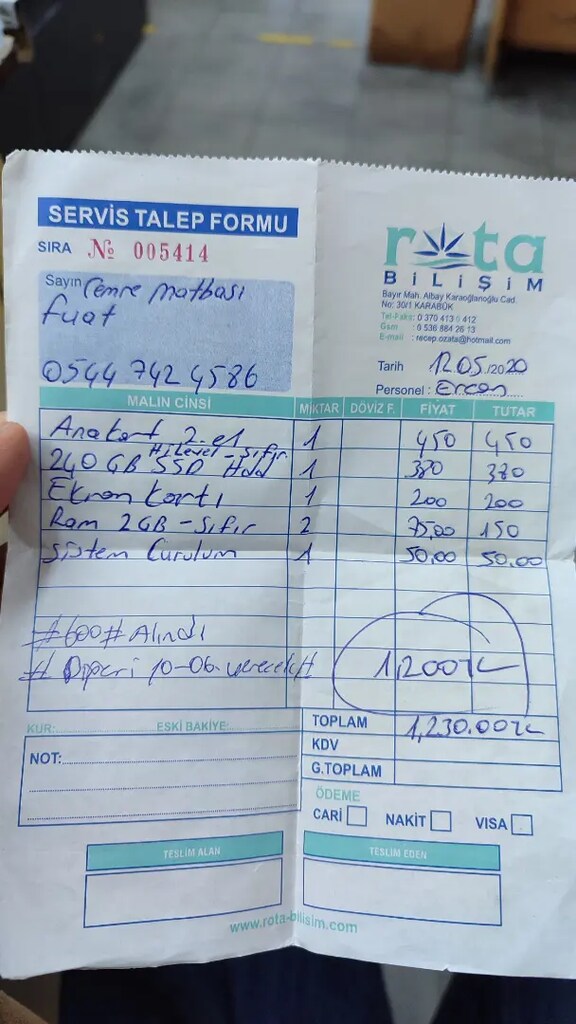 SERVİS TALEP FORMU
SIRA № 005414
rota
BİLİŞİM
Bayır Mah. Albay Karaoğlanoğlu Cad.
No: 30/1 KARABÜK
Tel-Faks: 0 370 413 6 412
Gsm : 0 536 884 26 13
E-mail : recep.ozata@hotmail.com
Sayın Cemre Matbası
fuat
0544 742 4586
Tarih 12.05/2020
Personel : Ercan
MALIN CİNSİ MİKTAR DÖVİZ F. FİYAT TUTAR
Anakart 2.el 1 450 450
Hi Level - Sıfır
240 GB SSD Hdd 1 380 380
Ekran kartı 1 200 200
Ram 2GB - Sıfır 2 75,00 150
Sistem Curulum 1 50.00 50.00
#600# Alındı
# Diğeri 10-06. verecek #
1,200TL
TOPLAM 1,230.00TL
KUR: ESKİ BAKİYE:
KDV
NOT:
G.TOPLAM
ÖDEME
CARİ NAKİT VISA
TESLİM ALAN TESLİM EDEN
www.rota-bilisim.com